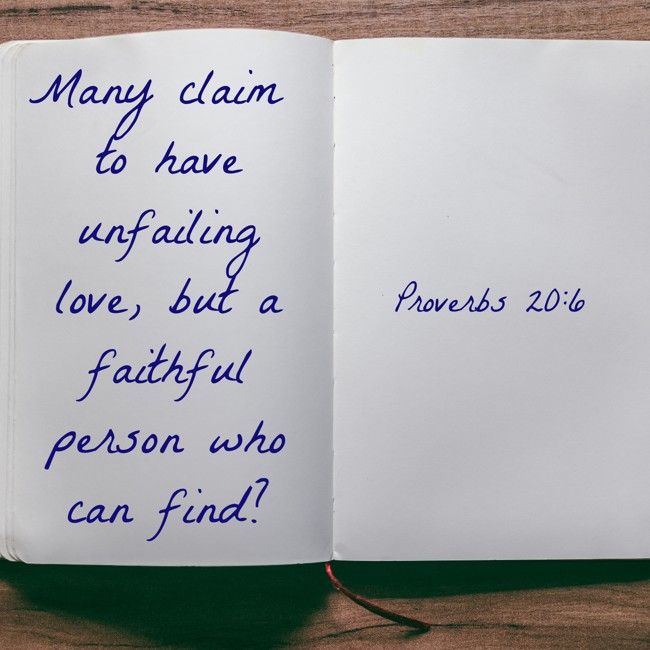 Many claim
to have
unfailing
love, but a
faithful
person who
can find?
Proverbs 20:6